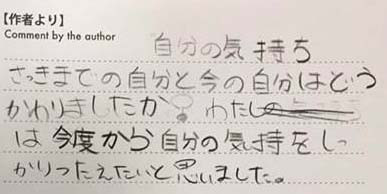 【作者より】
Comment by the author
自分の気持ち
さっきまでの自分と今の自分はどう
かわりましたか？わたし
は今度から自分の気持をしっ
かりつたえたいと思いました。